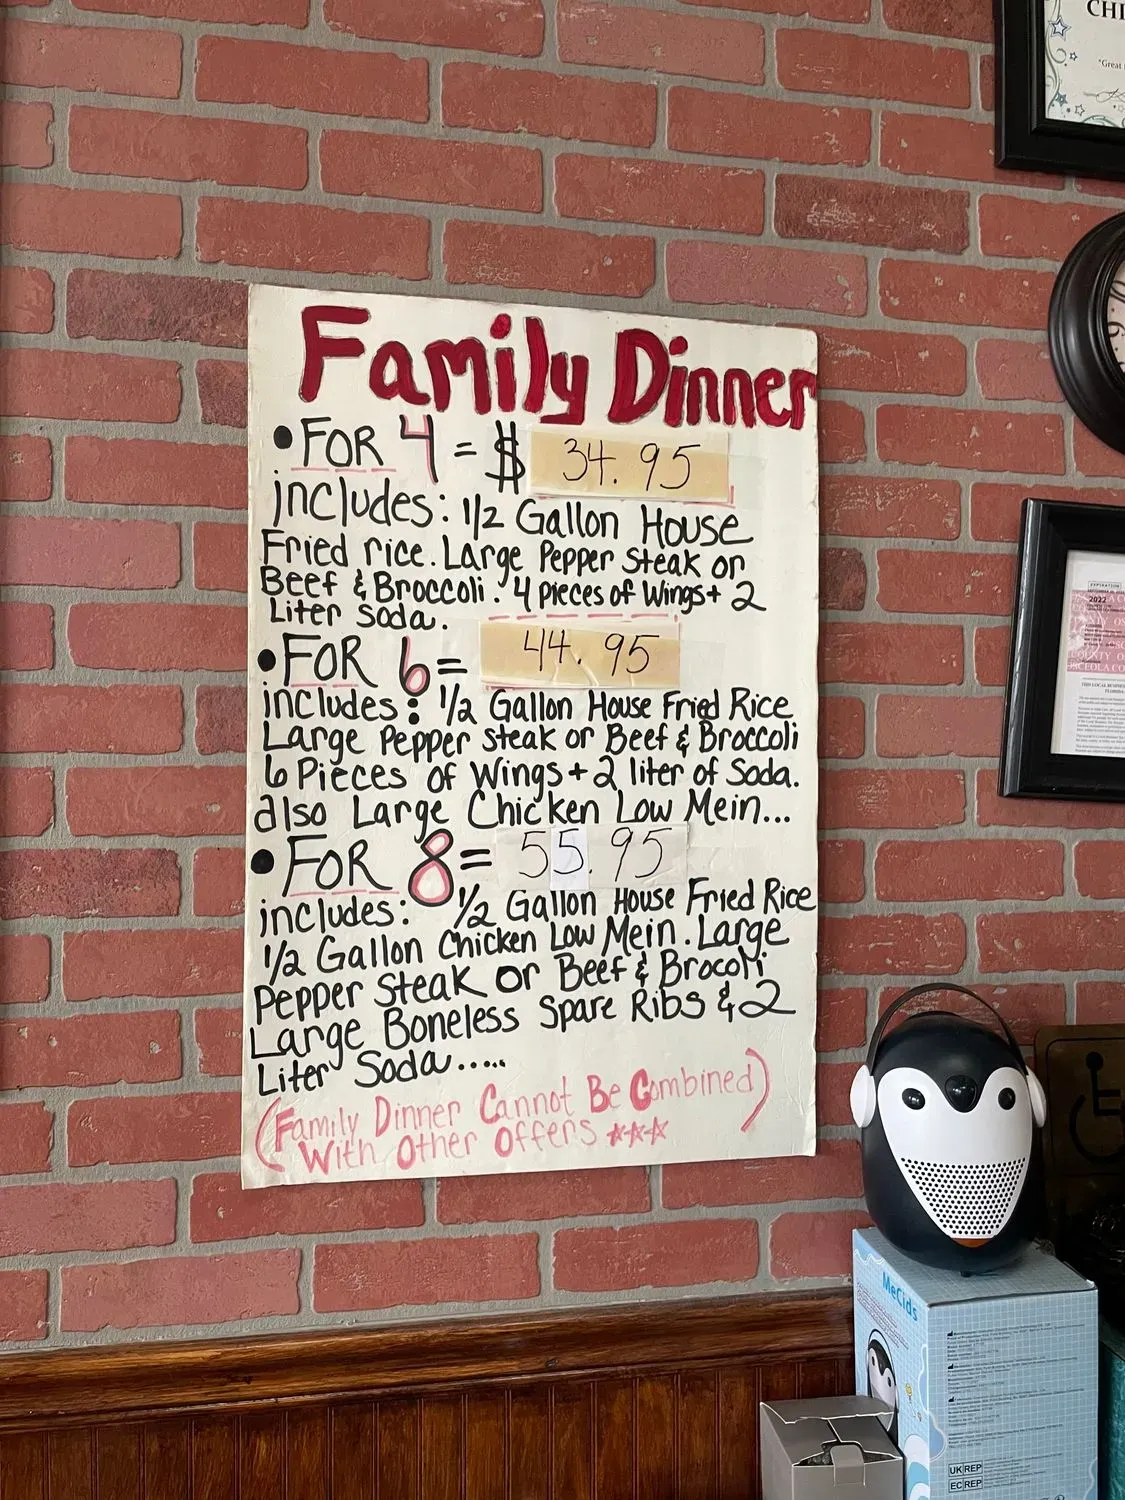 Family Dinner
• FOR 4 = $ 34.95
includes: 1/2 Gallon House
Fried rice. Large Pepper Steak or
Beef & Broccoli. 4 pieces of Wings + 2
Liter Soda.
• FOR 6 = 44.95
includes: 1/2 Gallon House Fried Rice
Large Pepper Steak or Beef & Broccoli
6 Pieces of Wings + 2 liter of Soda.
also Large Chicken Low Mein...
• FOR 8 = 55.95
includes: 1/2 Gallon House Fried Rice
1/2 Gallon Chicken Low Mein. Large
Pepper Steak or Beef & Brocoli
Large Boneless Spare Ribs & 2
Liter Soda.....
(Family Dinner Cannot Be Combined)
With Other Offers ***
"Great
EXPIRATION
2022
MeCids
UK REP
EC REP